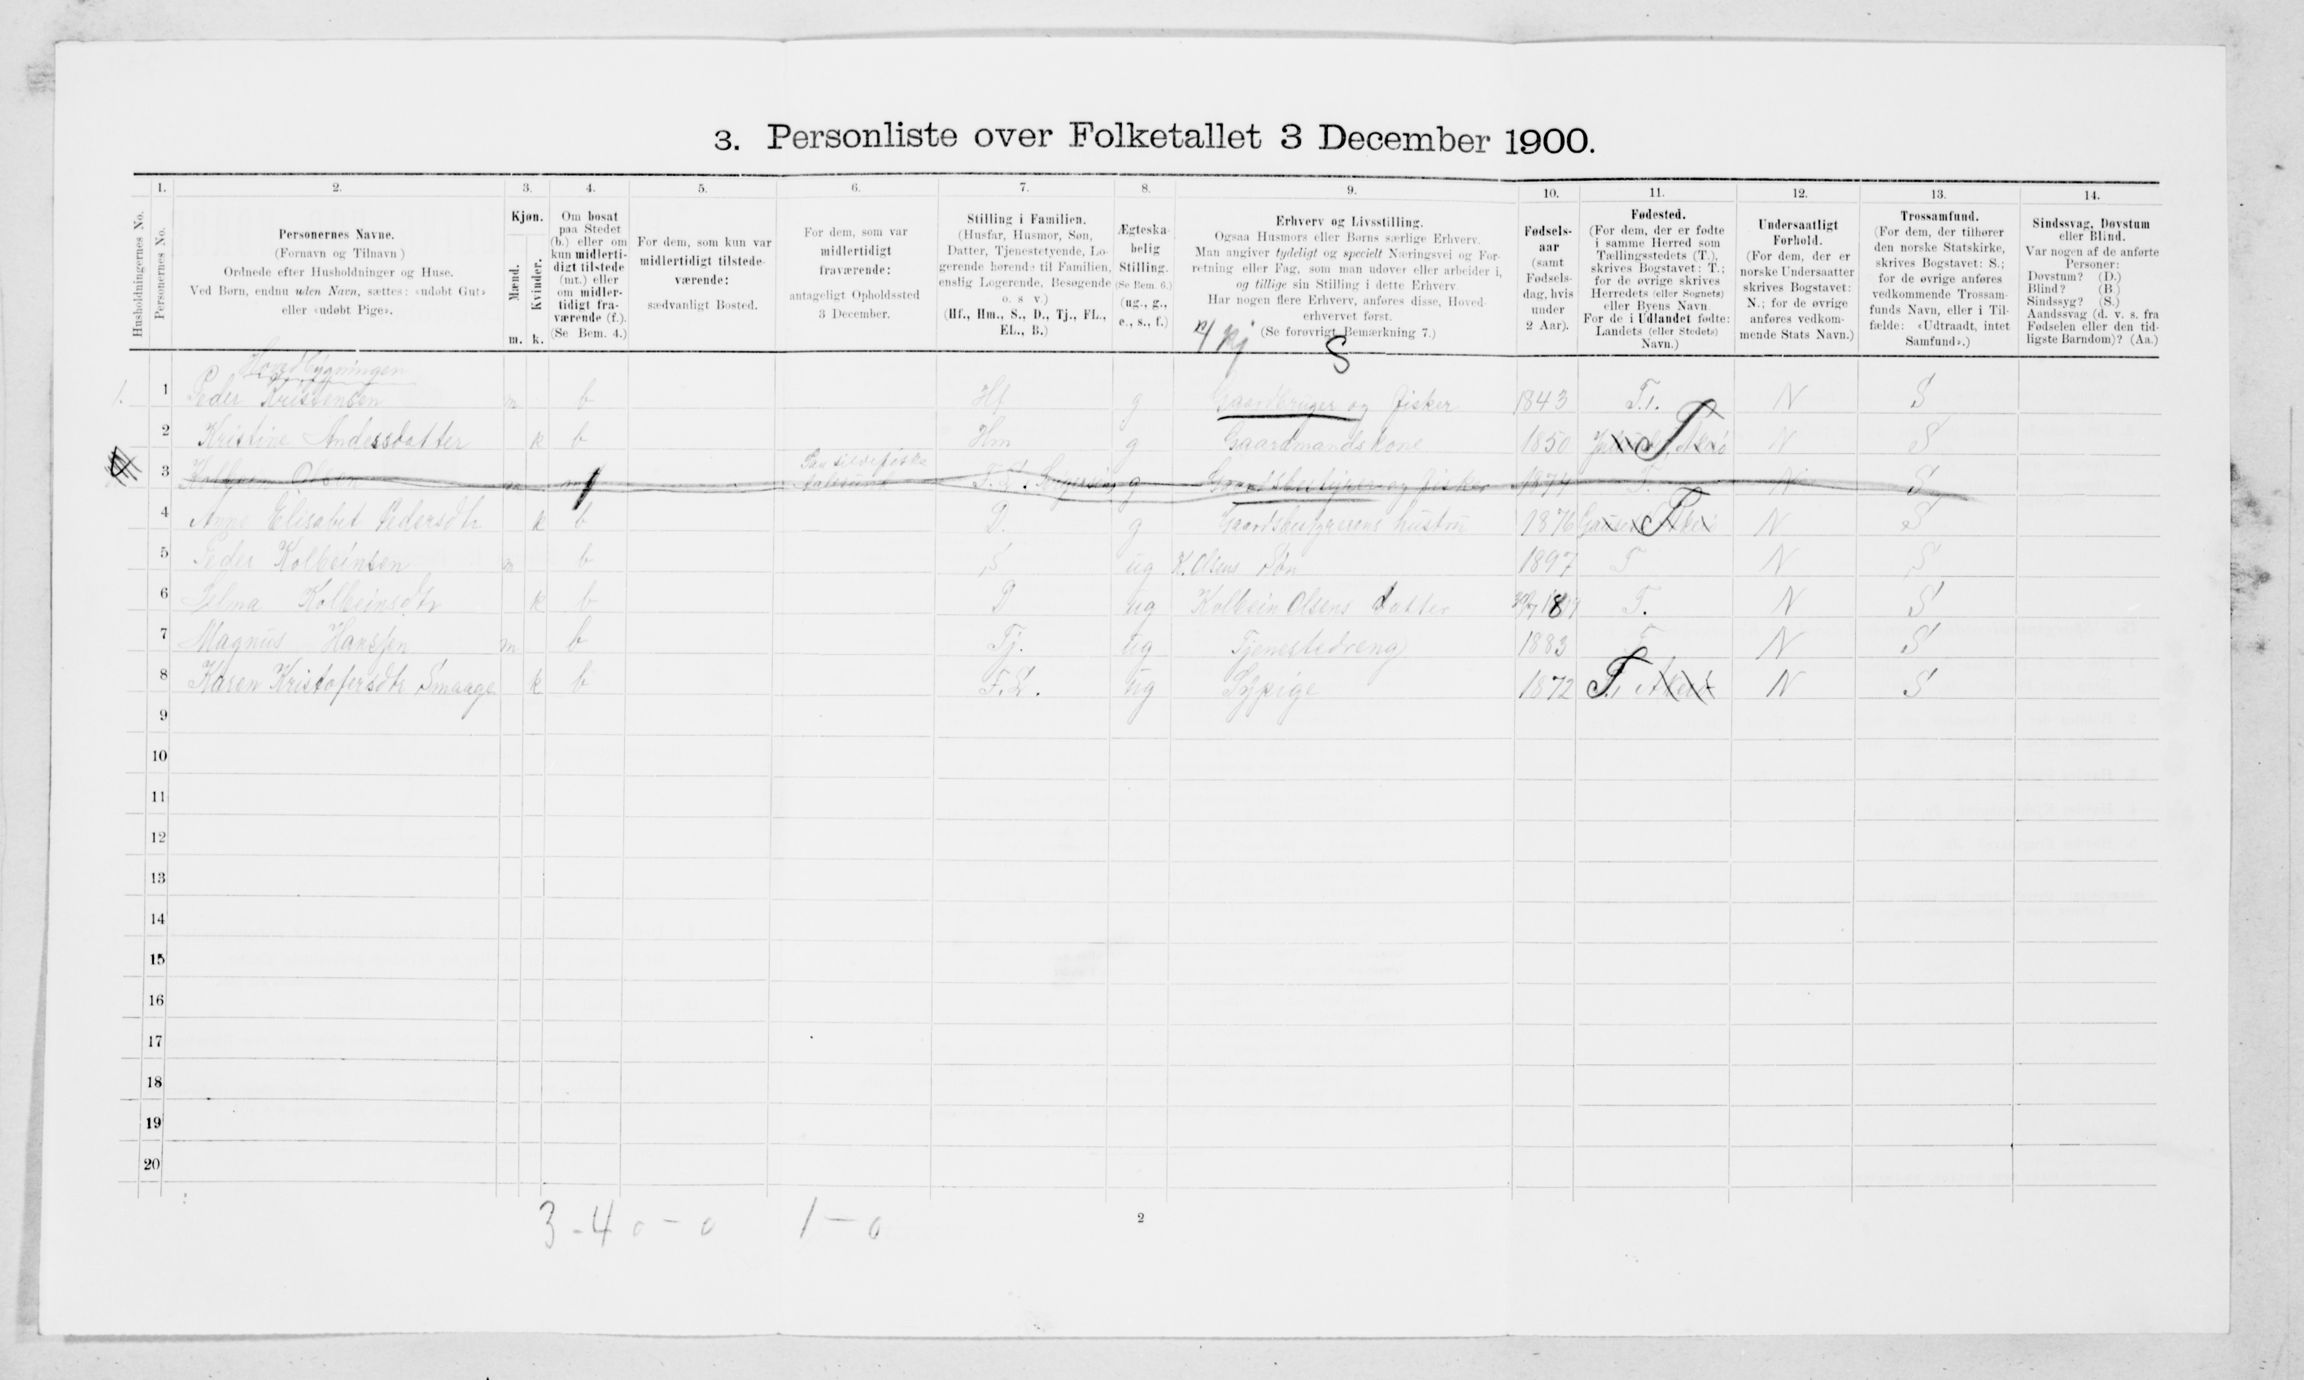 3. Personliste over Folketallet 3 December 1900.
1. 2. 3. 4. 5. 6. 7. 8. 9. 10. 11. 12. 13. 14.
Husholdningernes No.
Personernes No.
Personernes Navne.
(Fornavn og Tilnavn)
Ordnede efter Husholdninger og Huse.
Ved Børn, endnu uden Navn, sættes: «udøbt Gut»
eller «udøbt Pige».
Kjøn.
Mænd.
Kvinder.
m. k.
Om bosat
paa Stedet
(b.) eller om
kun midlerti-
digt tilstede
(mt.) eller
om midler-
tidigt fra-
værende (f.).
(Se Bem. 4.)
For dem, som kun var
midlertidigt tilstede-
værende:
sædvanligt Bosted.
For dem, som var
midlertidigt
fraværende:
antageligt Opholdssted
3 December.
Stilling i Familien.
(Husfar, Husmor, Søn,
Datter, Tjenestetyende, Lo-
gerende hørende til Familien,
enslig Logerende, Besøgende
o. s v.)
(Hf., Hm., S., D., Tj., FL.,
EL., B.)
Ægteska-
belig
Stilling.
(Se Bem. 6.)
(ug., g.,
e., s., f.)
Erhverv og Livsstilling.
Ogsaa Husmors eller Børns særlige Erhverv.
Man angiver tydeligt og specielt Næringsvei og For-
retning eller Fag, som man udøver eller arbeider i,
og tillige sin Stilling i dette Erhverv.
Har nogen flere Erhverv, anføres disse, Hoved-
erhvervet først.
(Se forøvrigt Bemærkning 7.)
S
Fødsels-
aar
(samt
Fødsels-
dag, hvis
under
2 Aar).
Fødested.
(For dem, der er fødte
i samme Herred som
Tællingsstedets (T.),
skrives Bogstavet: T.;
for de øvrige skrives
Herredets (eller Sognets)
eller Byens Navn.
For de i Udlandet fødte:
Landets (eller Stedets)
Navn.)
Undersaatligt
Forhold.
(For dem, der er
norske Undersaatter
skrives Bogstavet:
N.; for de øvrige
anføres vedkom-
mende Stats Navn.)
Trossamfund.
(For dem, der tilhører
den norske Statskirke,
skrives Bogstavet: S.;
for de øvrige anføres
vedkommende Trossam-
funds Navn, eller i Til-
fælde: «Udtraadt, intet
Samfund».)
Sindssvag, Døvstum
eller Blind.
Var nogen af de anførte
Personer:
Døvstum? (D.)
Blind? (B.)
Sindssyg? (S.)
Aandssvag (d. v. s. fra
Fødselen eller den tid-
ligste Barndom)? (Aa.)
Hovedbygningen
1. 1 Peder Kristensen m b Hf g Gaardbruger og fisker 1843 T. N S
2 Kristine Andersdatter k b Hm g Gaardmandskone 1850 T N S
3 Kolbein Olsen m f Paa sildefiske Aalesund F.L. g Gaardsbestyrer og fisker 1874 T. N S
4 Anne Elisabet Pedersdtr k b D. g Gaardsbestyrerens hustru 1876 T N S
5 Peder Kolbeinsen m b S ug K. Olsens Søn 1897 T N S
6 Selma Kolbeinsdtr k b D ug Kolbein Olsens datter T. N S
7 Magnus Hansen m b Tj. ug Tjenestedreng 1883 T N S
8 Karen Kristofersdtr Smaage k b F.L. ug Sypige 1872 T. N S
9
10
11
12
13
14
15
16
17
18
19
20
3 - 4 0 - 0 1 - 0
2